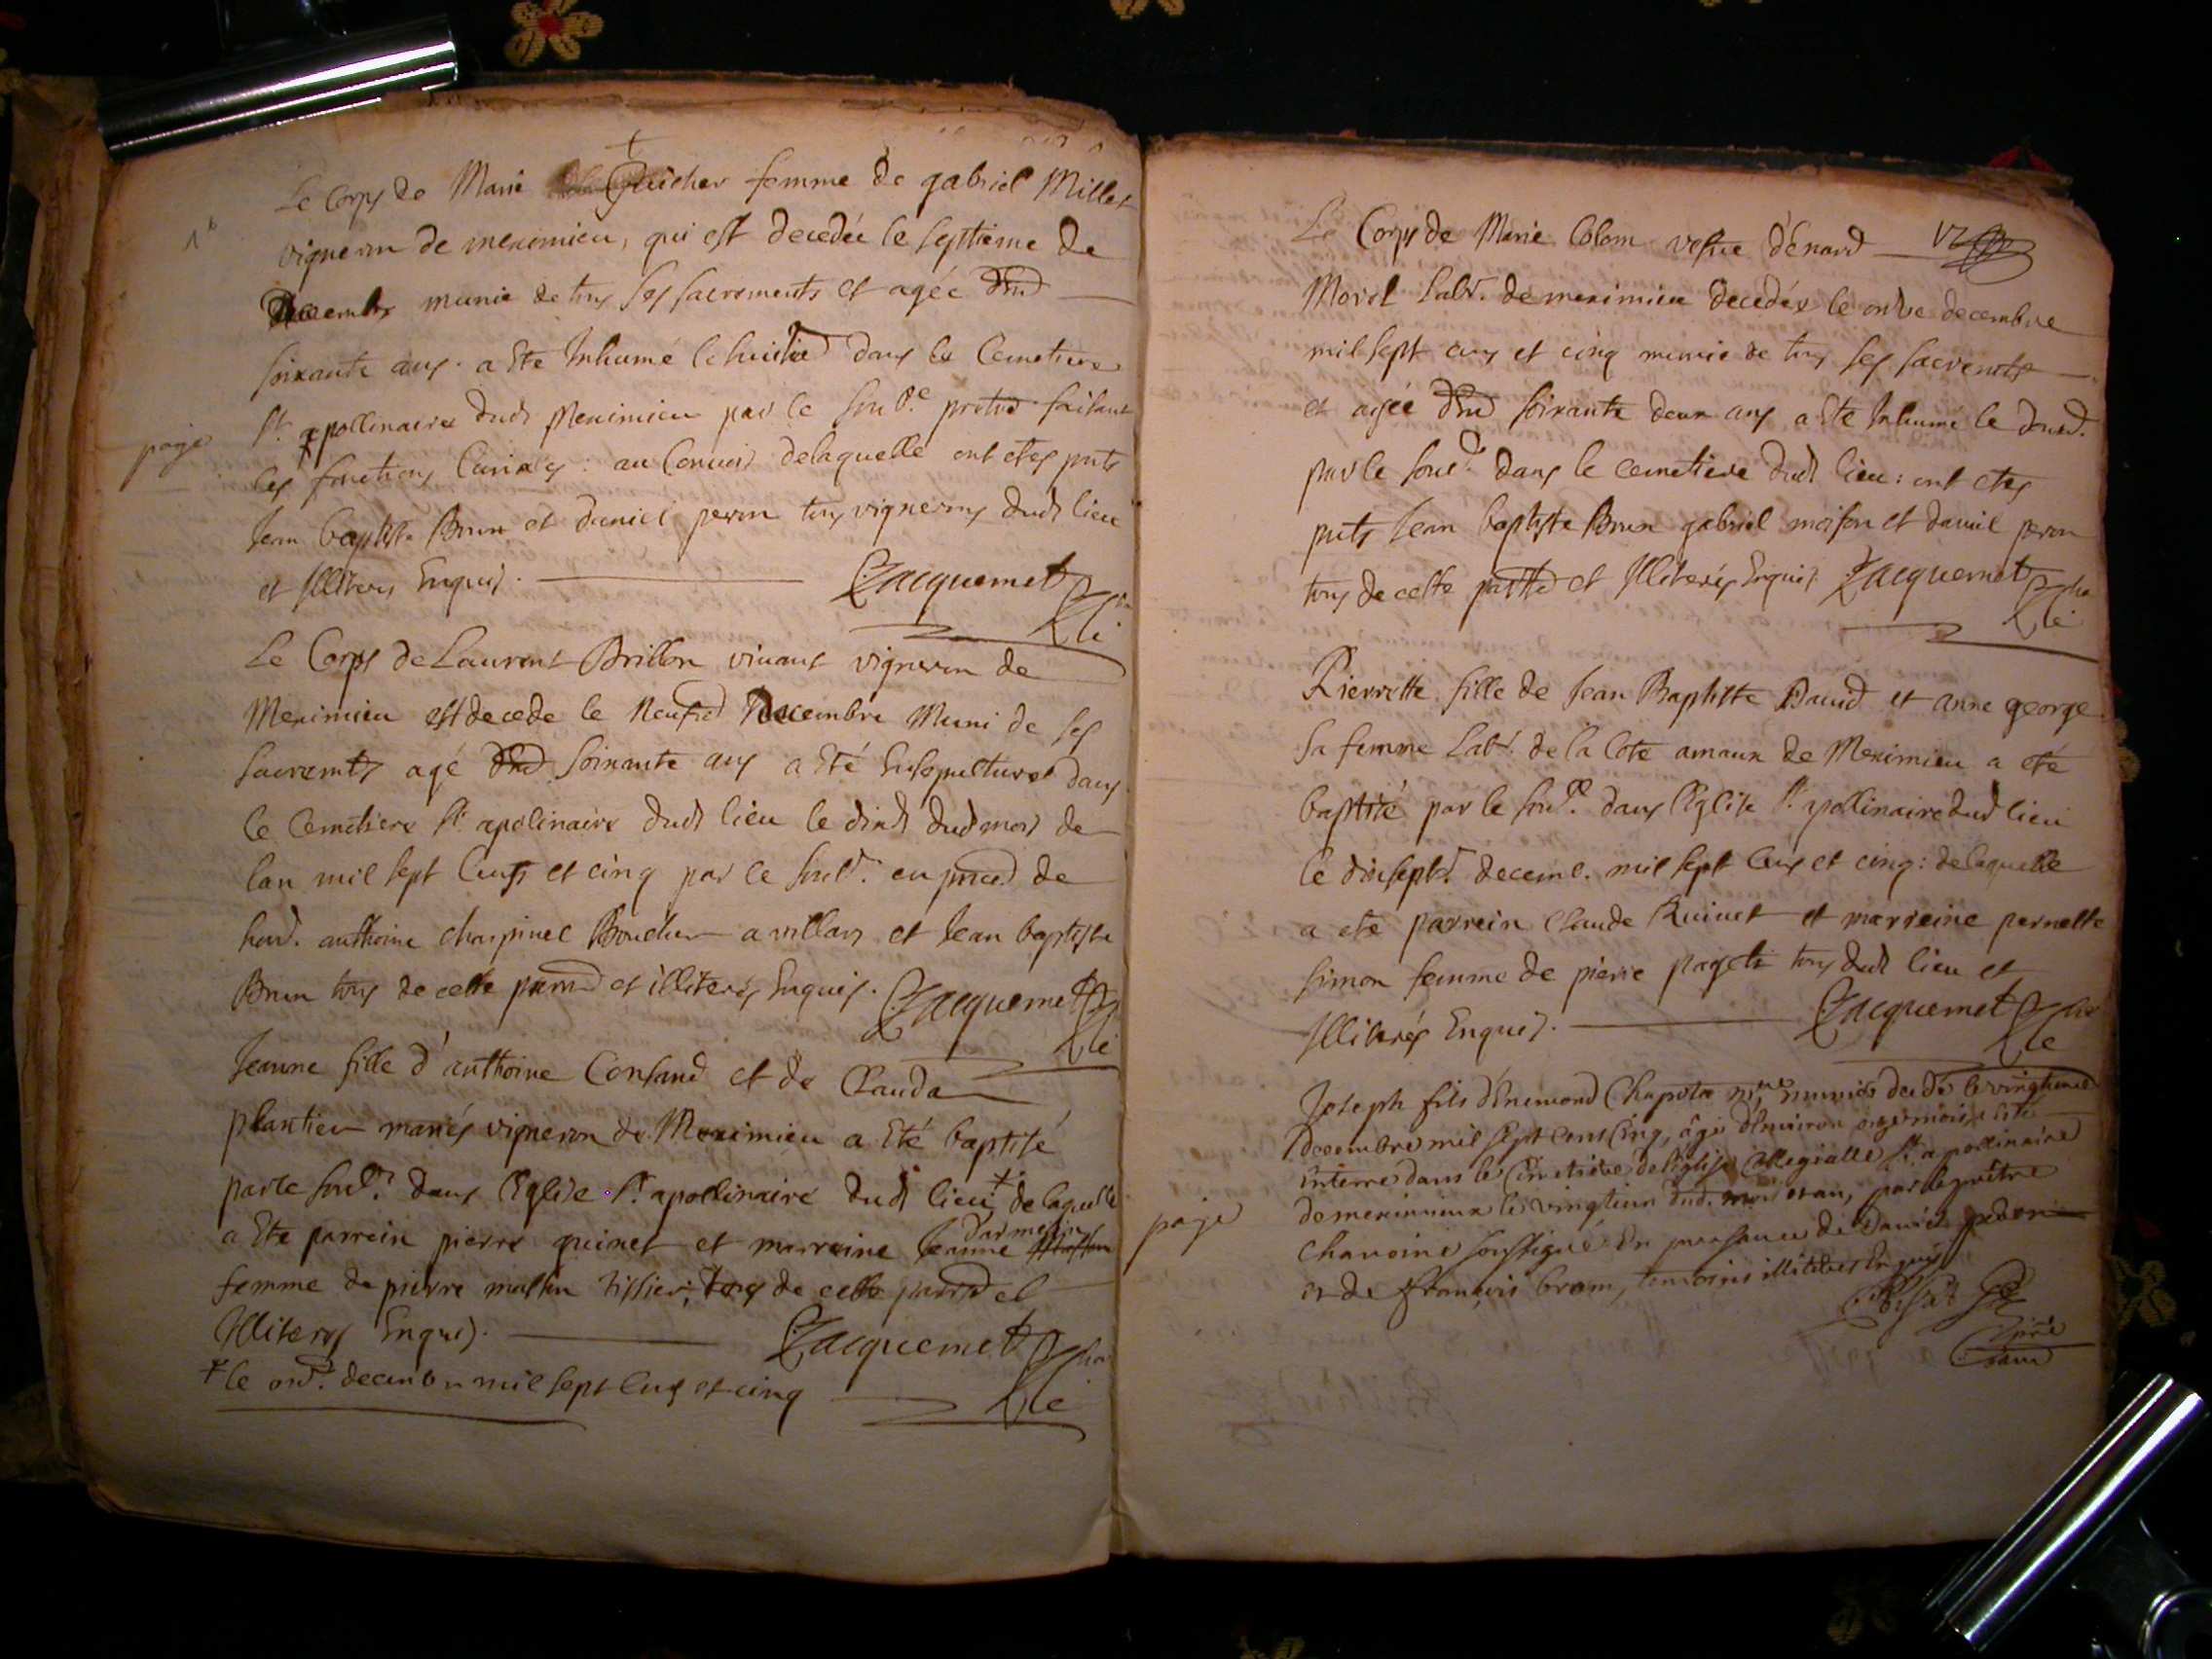 Le Corps de Marie Guicher femme de gabriel Millet
vigneron de meximieu, qui est decedée le septieme de
Decembre munie de tous ses sacrements et agée d'env
soixante ans. a Ete Inhumé le huitie dans le Cemetiere
page
St apollinaire dudt Meximieu par le sousé pretre faisant
les fonctions Curiales: au Convoi delaquelle ont etes pnts
Jean baptiste Brun et daniel peron tous vignerons dudt lieu
et Illiteres Enquis. Jacquemet
Le Corps de Laurent Brillon vivant vigneron de
Meximieu est decede le neufie Decembre Muni de ses
sacremts agé d'env soixante ans a Eté Ensepulturé dans
le Cemetiere St apolinaire dudt lieu le dixt dud mois de
lan mil sept Cents et cinq par le sousé. en pnce de
hon. anthoine charpinel Boucher a villars et Jean baptiste
Brun tous de cette parr et illiterés Enquis. Jacquemet
Jeanne fille d'anthoine Consand et de Clauda
plantier mariés vigneron de Meximieu a Eté baptisé
par le sousé dans l'Eglise St apollinaire dudt lieu + delaquelle
a Ete parrein pierre quinet et marreine Jeanne
femme de pierre tissier, tous de cette parr et
Illiteres Enquis. Jacquemet
+ le onz. decembre mil sept Cens et cinq
Le Corps de Marie Colom vefve d'énard
Morel Labr. de meximieu decedée le onze decembre
mil sept cens et cinq munie de tous ses sacremts
et agée d'env soixante deux ans a Ete Inhumé le douz.
par le sousé dans le cemetiere dudt lieu: ont etes
pnts Jean baptiste Brun gabriel moison et daniel peron
tous de cette parr et Illiterés Enquis Jacquemet
Pierrette fille de Jean Baptiste David et anne george
sa femme Labr. de la Cote amaux de Meximieu a eté
baptisé par le sousé dans l'Eglise St apollinaire dud lieu
le dixsept. decem. mil sept Cens et cinq: delaquelle
a eté parrein Claude Quinet et marreine pernette
simon femme de pierre pagets tous dudt lieu et
Illiterés Enquis. Jacquemet
Joseph fils d'Enemond Chapota decedé le vingtieme
Decembre mil sept cent cinq, âgé d'environ onze mois, a été
interré dans le Cimetiere de l'église Collegialle St apollinaire
page
de meximieux le vingtun dud. mois et an, par le prêtre
chanoine soussigné En presence de Daniel peron
et de François brom, temoins illiterés Enquis